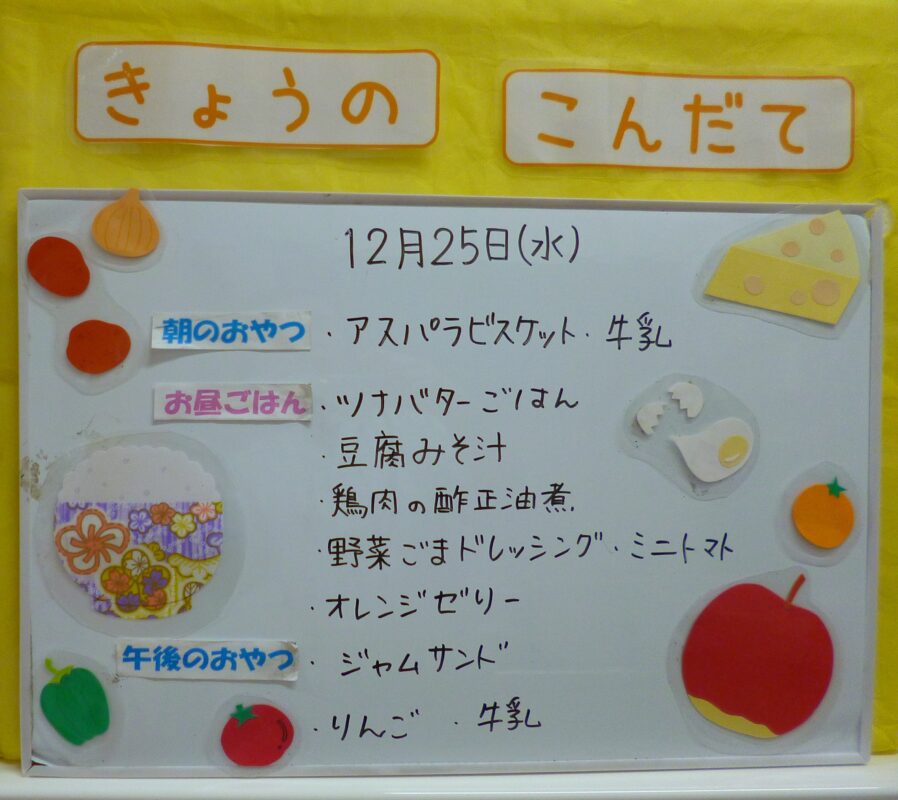 きょうの こんだて
12月25日(水)
朝のおやつ ・アスパラビスケット・牛乳
お昼ごはん ・ツナバターごはん
・豆腐みそ汁
・鶏肉の酢正油煮
・野菜ごまドレッシング・ミニトマト
・オレンジゼリー
午後のおやつ ・ジャムサンド
・りんご ・牛乳